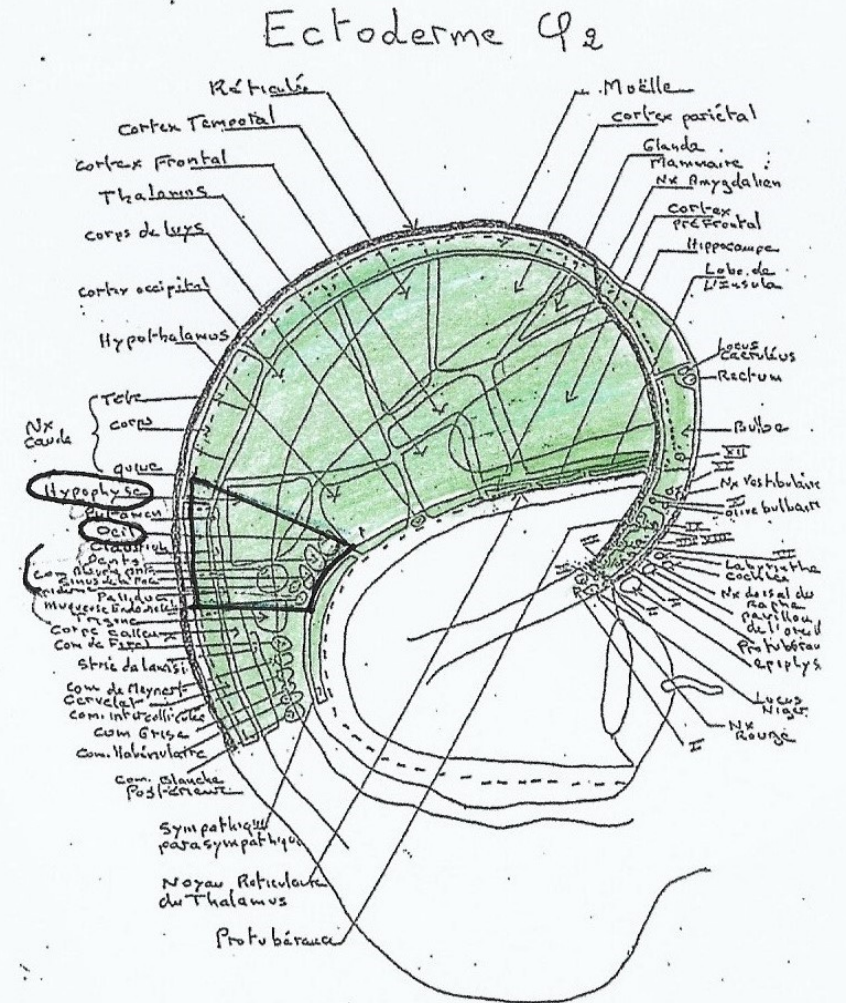 Ectoderme φ2
Réticulée
Cortex Temporal
Cortex Frontal
Thalamus
Corps de Luys
Cortex occipital
Hypothalamus
Nx
Caudé
Tête
Corps
queue
Hypophyse
Putamen
Oeil
Claustrum
Dents
Pallidum
Trigone
Corps calleux
Com de Forel
Strie de Lancisi
Com. de Meynert
Cervelet
Com. intercolliculaire
Com Grise
Com. Habénulaire
Com. Blanche
Postérieure
Sympathique
parasympathique
Noyau Réticulaire
du Thalamus
Protubérance
Moëlle
Cortex pariétal
Glande
Mammaire
Nx Amygdalien
Cortex
préfrontal
Hippocampe
Lobe de
L'Insula
Locus
Caeruléus
Rectum
Bulbe
XII
Nx vestibulaire
X
olive bulbaire
Labyrinthe
Cochlée
Nx dorsal du
Raphe
pavillon
de l'oreil
Protubéran
epiphys
Locus
Niger
Nx
Rouge
I
II